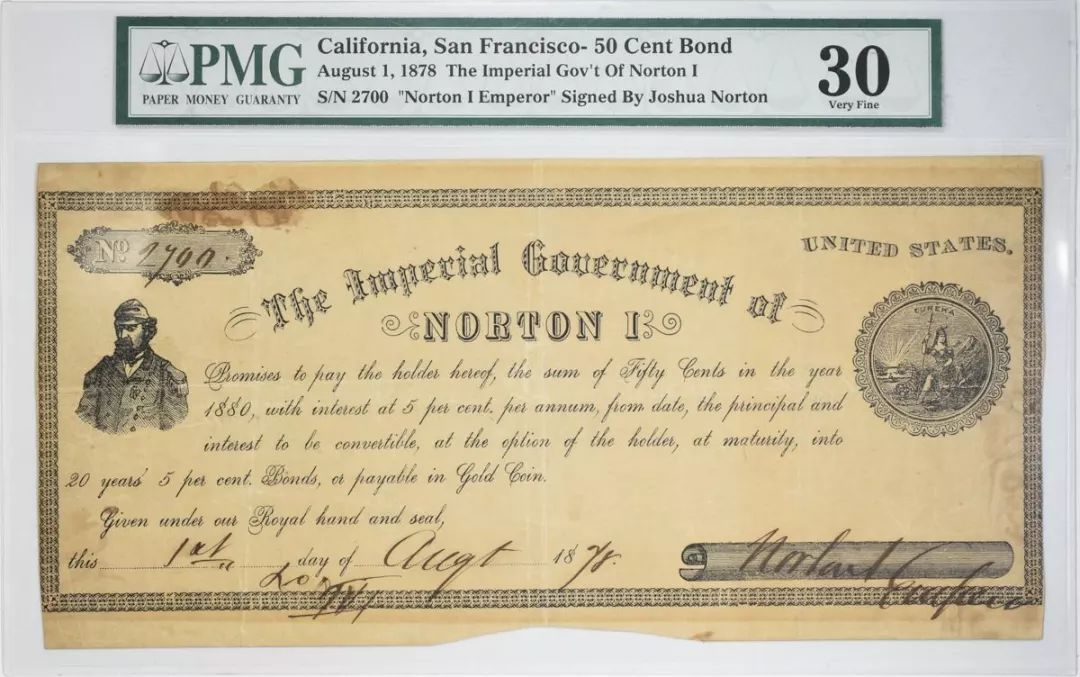 PMG
PAPER MONEY GUARANTY
California, San Francisco- 50 Cent Bond
August 1, 1878 The Imperial Gov't Of Norton I
S/N 2700 "Norton I Emperor" Signed By Joshua Norton
30
Very Fine
No 2700.
UNITED STATES.
The Imperial Government of
NORTON I
EUREKA
Promises to pay the holder hereof, the sum of Fifty Cents in the year
1880, with interest at 5 per cent. per annum, from date, the principal and
interest to be convertible, at the option of the holder, at maturity, into
20 years' 5 per cent. Bonds, or payable in Gold Coin.
Given under our Royal hand and seal,
this 1st day of Augt 1878.
Norton I
Emperor